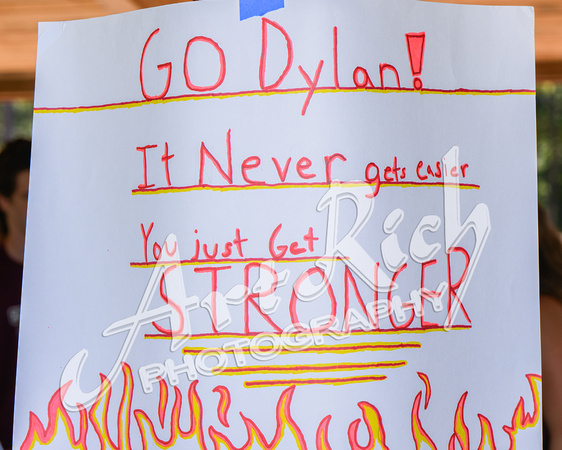 GO Dylan!
It Never gets easier
You just Get
STRONGER
Art Rich
PHOTOGRAPHY